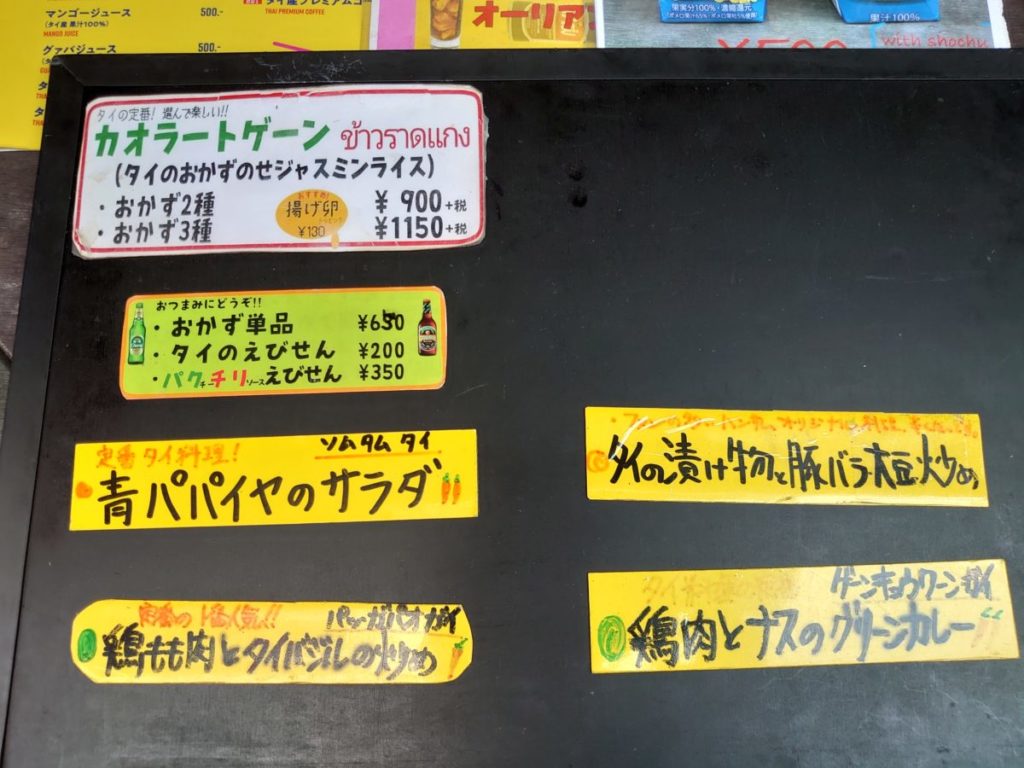 500.-
(タイ産 果汁100%)
MANGO JUICE
グァバジュース 500.-
タイ産プレミアムコー
THAI PREMIUM COFFEE
オーリアン
果汁100%
with shochu
タイの定番! 選んで楽しい!!
カオラートゲーン ข้าวราดแกง
(タイのおかずのせジャスミンライス)
・おかず2種 ¥ 900+税
・おかず3種 ¥1150+税
おすすめ!
揚げ卵
トッピング
¥130
おつまみにどうぞ!!
・おかず単品 ¥650
・タイのえびせん ¥200
・パクチーチリソースえびせん ¥350
定番タイ料理! ソムタム タイ
青パパイヤのサラダ
タイの漬け物と豚バラ大豆炒め
パッガパオガイ
鶏もも肉とタイバジルの炒め
ゲーンキョウワーンガイ
鶏肉とナスのグリーンカレー